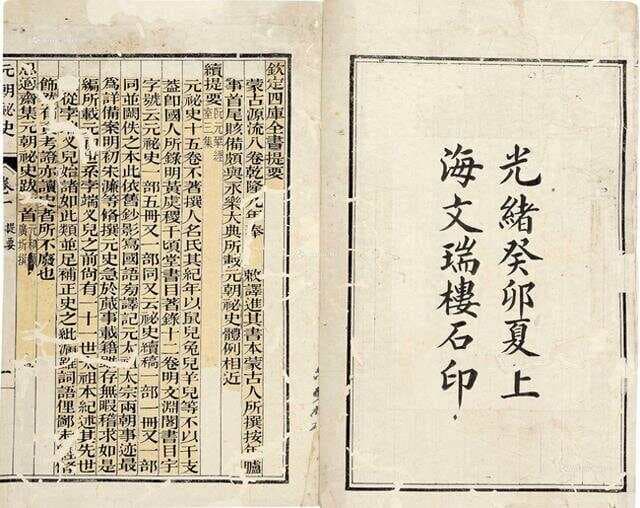 光緒癸卯夏上
海文瑞樓石印
欽定四庫全書提要
蒙古源流八卷乾隆九年奉 敕譯進其書本蒙古人所撰按年臚
事首尾賅備頗與永樂大典所載元朝祕史體例相近
續提要 阮元揅經室三集
元祕史十五卷不著撰人名氏其紀年以鼠兒兔兒羊兒等不以干支
蓋卽國人所錄明黃虞稷千頃堂書目著錄十二卷明文淵閣書目宇
字號云元祕史一部五冊又一部同又云祕史續稿一部一冊又一部
同並闕佚之本此依舊鈔影寫國語旁譯記元太祖太宗兩朝事迹最
爲詳備案明初宋濂等脩撰元史急於蕆事載籍存無暇稽求如是
編所載元世系孛端叉兒之前尚有一十一世太祖本紀述其先世
從孛端叉兒始諸如此類並足補正史之紕漏雖詞語俚鄙未
飾有資考證亦讀史者所不廢也
思適齋集元朝祕史跋一首 元和顧廣圻撰
元朝祕史 卷一 提要 一